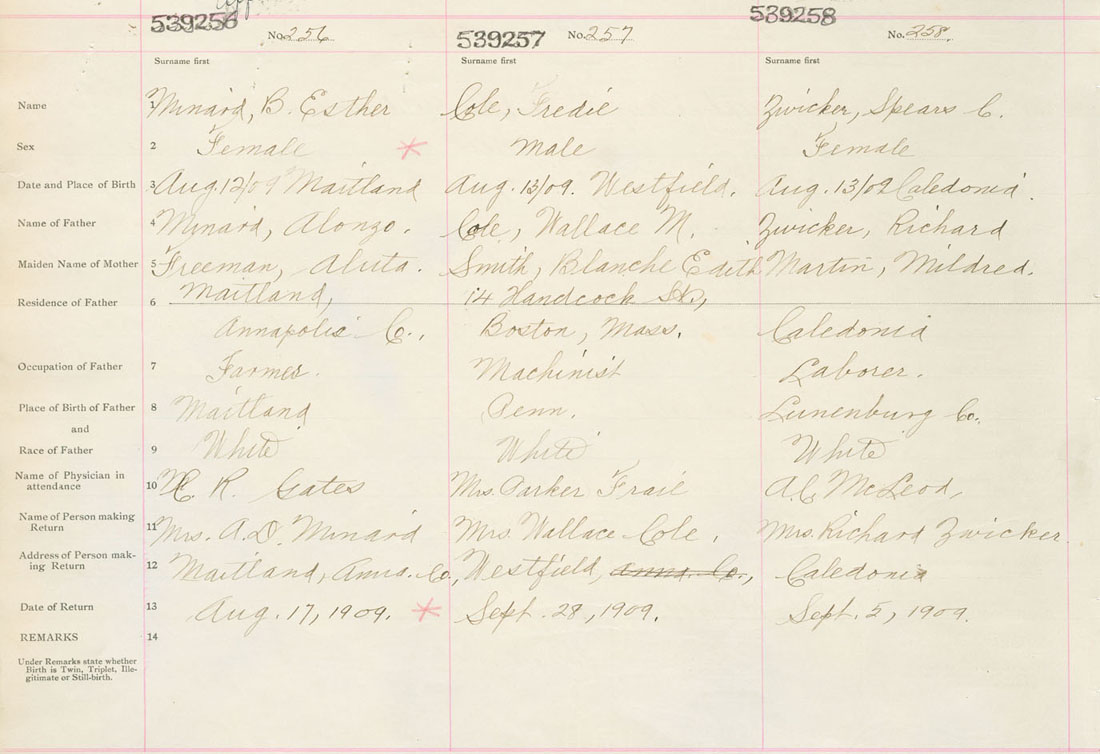 539256
No. 256
539257
No. 257
539258
No. 258.
Surname first
Surname first
Surname first
Name
1 Minard, B. Esther
Cole, Fredie
Zwicker, Spears C.
Sex
2 Female
Male
Female
Date and Place of Birth
3 Aug. 12/09 Maitland
Aug. 13/09. Westfield.
Aug. 13/09 Caledonia.
Name of Father
4 Minard, Alonzo.
Cole, Wallace M.
Zwicker, Richard
Maiden Name of Mother
5 Freeman, Aluta.
Smith, Blanche Edith
Martin, Mildred.
Residence of Father
6 Maitland,
Annapolis Co.,
14 Handcock St.,
Boston, Mass.
Caledonia
Occupation of Father
7 Farmer.
Machinist
Laborer.
Place of Birth of Father
8 Maitland
Penn.
Lunenburg Co.
and
Race of Father
9 White
White
White
Name of Physician in
attendance
10 R. Gates
Mrs. Parker Frail
A.C. McLeod,
Name of Person making
Return
11 Mrs. A.D. Minard
Mrs. Wallace Cole,
Mrs. Richard Zwicker.
Address of Person mak-
ing Return
12 Maitland, Anna. Co.,
Westfield, Anna. Co.,
Caledonia
Date of Return
13 Aug. 17, 1909.
Sept. 28, 1909.
Sept. 5, 1909.
REMARKS 14
Under Remarks state whether
Birth is Twin, Triplet, Ille-
gitimate or Still-birth.